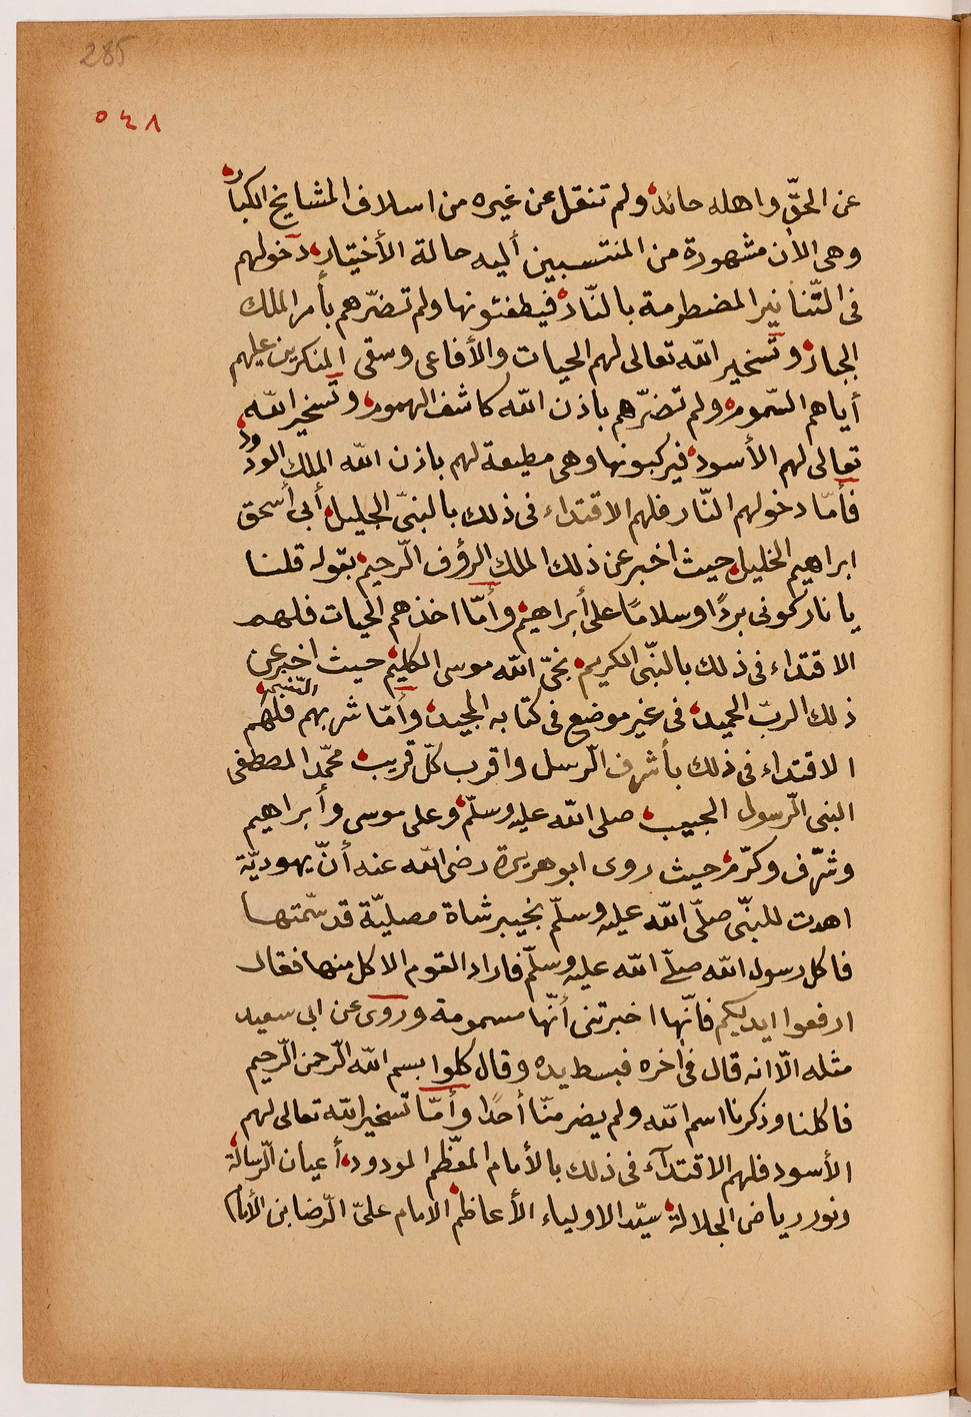 285
٥٤٨
عن الحقّ واهله حائد، ولم تنقل عن غيره من اسلاف المشايخ الكبار،
وهى الأن مشهورة من المنتسبين أليه حالة الأختيار، دخولهم
فى التّنانير المضطرمة بالنّار، فيطفئونها ولم تضرّهم بأمر الملك
الجبار، وتسخير اللّه تعالى لهم الحيات والأفاعى وسقى المنكرين عليهم
أياهم السّموم، ولم تضرّهم باذن اللّه كاشف الهموم، وتسخير اللّه
تعالى لهم الأسود، فيركبونها وهى مطيعة لهم باذن اللّه الملك الودود،
فأمّا دخولهم النّار فلهم الاقتداء فى ذلك بالنبىّ الجليل، أبى أسحق
ابراهيم الخليل، حيث اخبر عن ذلك الملك الرؤف الرّحيم، بقوله قلنا
يا نار كونى بردًا وسلامًا على أبراهيم، وأمّا اخذهم الحيات فلهم
الاقتداء فى ذلك بالنبّى الكريم، نجىّ اللّه موسى الكليم، حيث اخبر عن
ذلك الربّ الحميد، فى غير موضع فى كتابه المجيد، وأمّا شربهم السّمّ، فلهم
الاقتداء فى ذلك بأشرف الرّسل واقرب كلّ قريب، محمّد المصطفى
النبى الرّسول المجيب، صلى اللّه عليه وسلّم، وعلى موسى وأبراهيم
وشرّف وكرّم، حيث روى ابو هريرة رضى اللّه عنه أنّ يهوديّة
اهدت للنبّى صلّى اللّه عليه وسلّم بخيبر شاة مصليّة قد سّمتها
فاكل رسول اللّه صلّى اللّه عليه وسلّم فاراد القوم الاكل منها فقال
ارفعوا ايديكم فأنّها اخبرتنى أنّها مسمومة وروى عن ابى سعيد
مثله الّا انه قال فى أخره فبسط يده وقال كلوا بسم اللّه الرّحمن الرّحيم
فاكلنا وذكرنا اسم اللّه ولم يضر منّا أحدًا وأمّا تسخير اللّه تعالى لهم
الأسود فلهم الاقتدآء فى ذلك بالأمام المعظّم المودود، أعيان الرّسالة،
ونور رياض الجلالة، سيّد الاولياء الأعاظم، الامام علىّ الرّضا بن الأمام